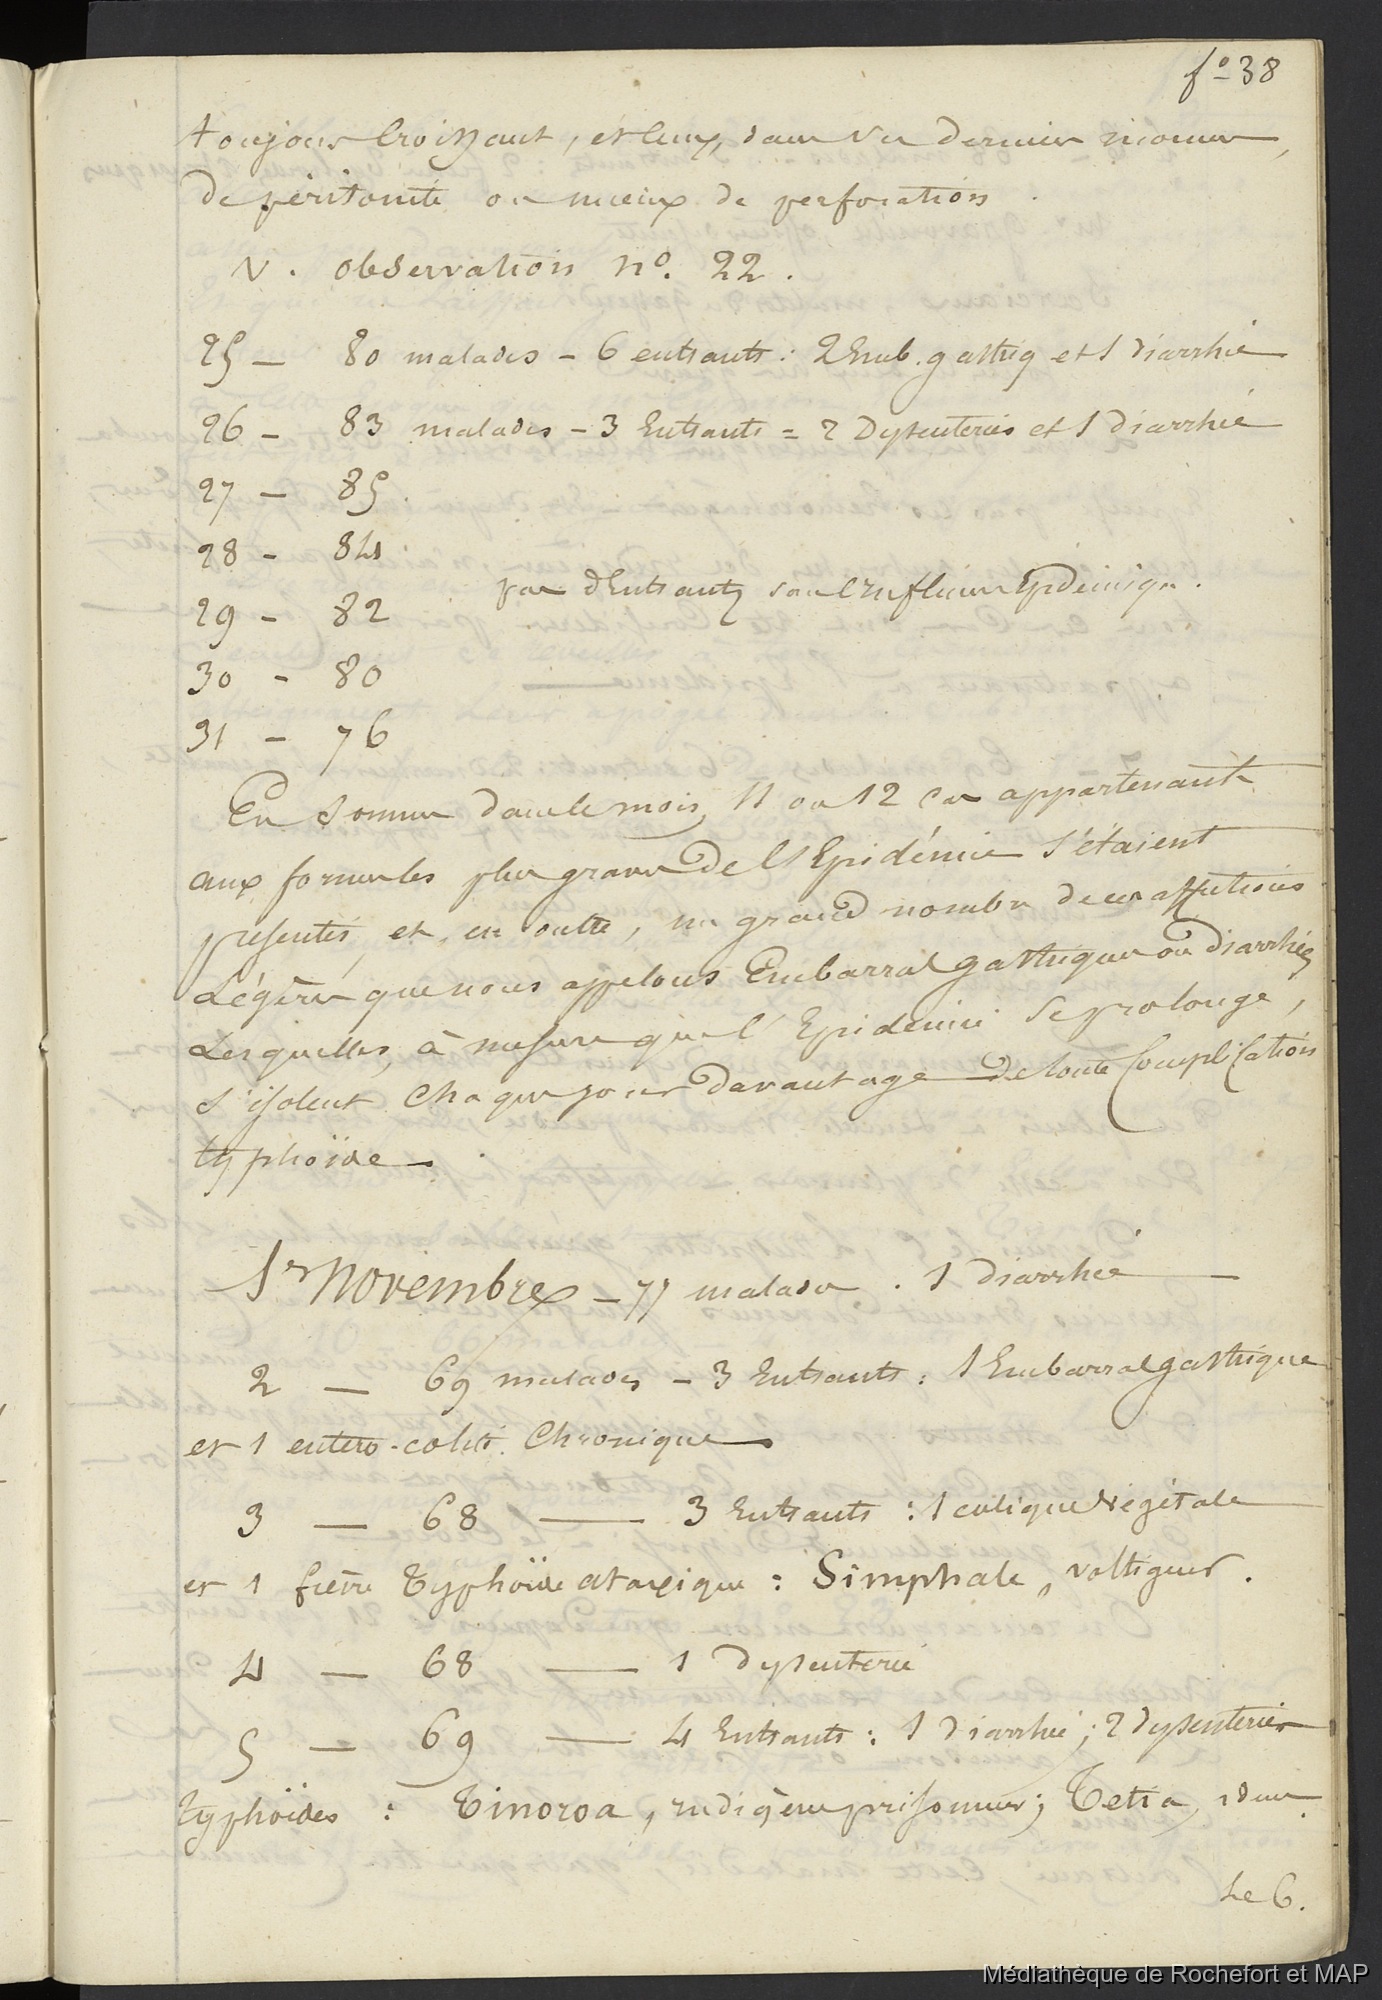 fº 38
toujours croissant, et enfin, dans ses derniers moments,
de péritonite ou mieux de perforation.
V. observation nº. 22.
25 — 80 malades — 6 entrants : 2 Emb. gastriq et 1 diarrhée
26 — 83 malades — 3 Entrants = 2 Dysenteries et 1 diarrhée
27 — 85.
28 — 84
pas d'Entrants sous l'Influence Epidémique.
29 — 82
30 — 80
31 — 76
En somme dans le mois, 11 ou 12 cas appartenant
aux formes les plus graves de l'Epidémie s'étaient
présentés et, en outre, un grand nombre de ces affections
Légères que nous appelons Embarras gastriques ou Diarrhées
Lesquelles, à mesure que l'Epidémie se prolonge,
s'isolent chaque jour davantage de toute Complication
typhoïde.
1er Novembre — 71 malades. 1 diarrhée —
2 — 69 malades — 3 Entrants : 1 Embarras gastrique
et 1 entero-colite Chronique
3 — 68 — 3 Entrants : 1 colique Végétale
et 1 fièvre Typhoïde ataxique : Simphale, voltigeur.
4 — 68 — 1 dysenterie
5 — 69 — 4 Entrants : 1 diarrhée ; 2 dysenteries
typhoïdes : Tinoroa, indigène prisonnier ; Tetia, idem.
Le 6.
Médiathèque de Rochefort et MAP